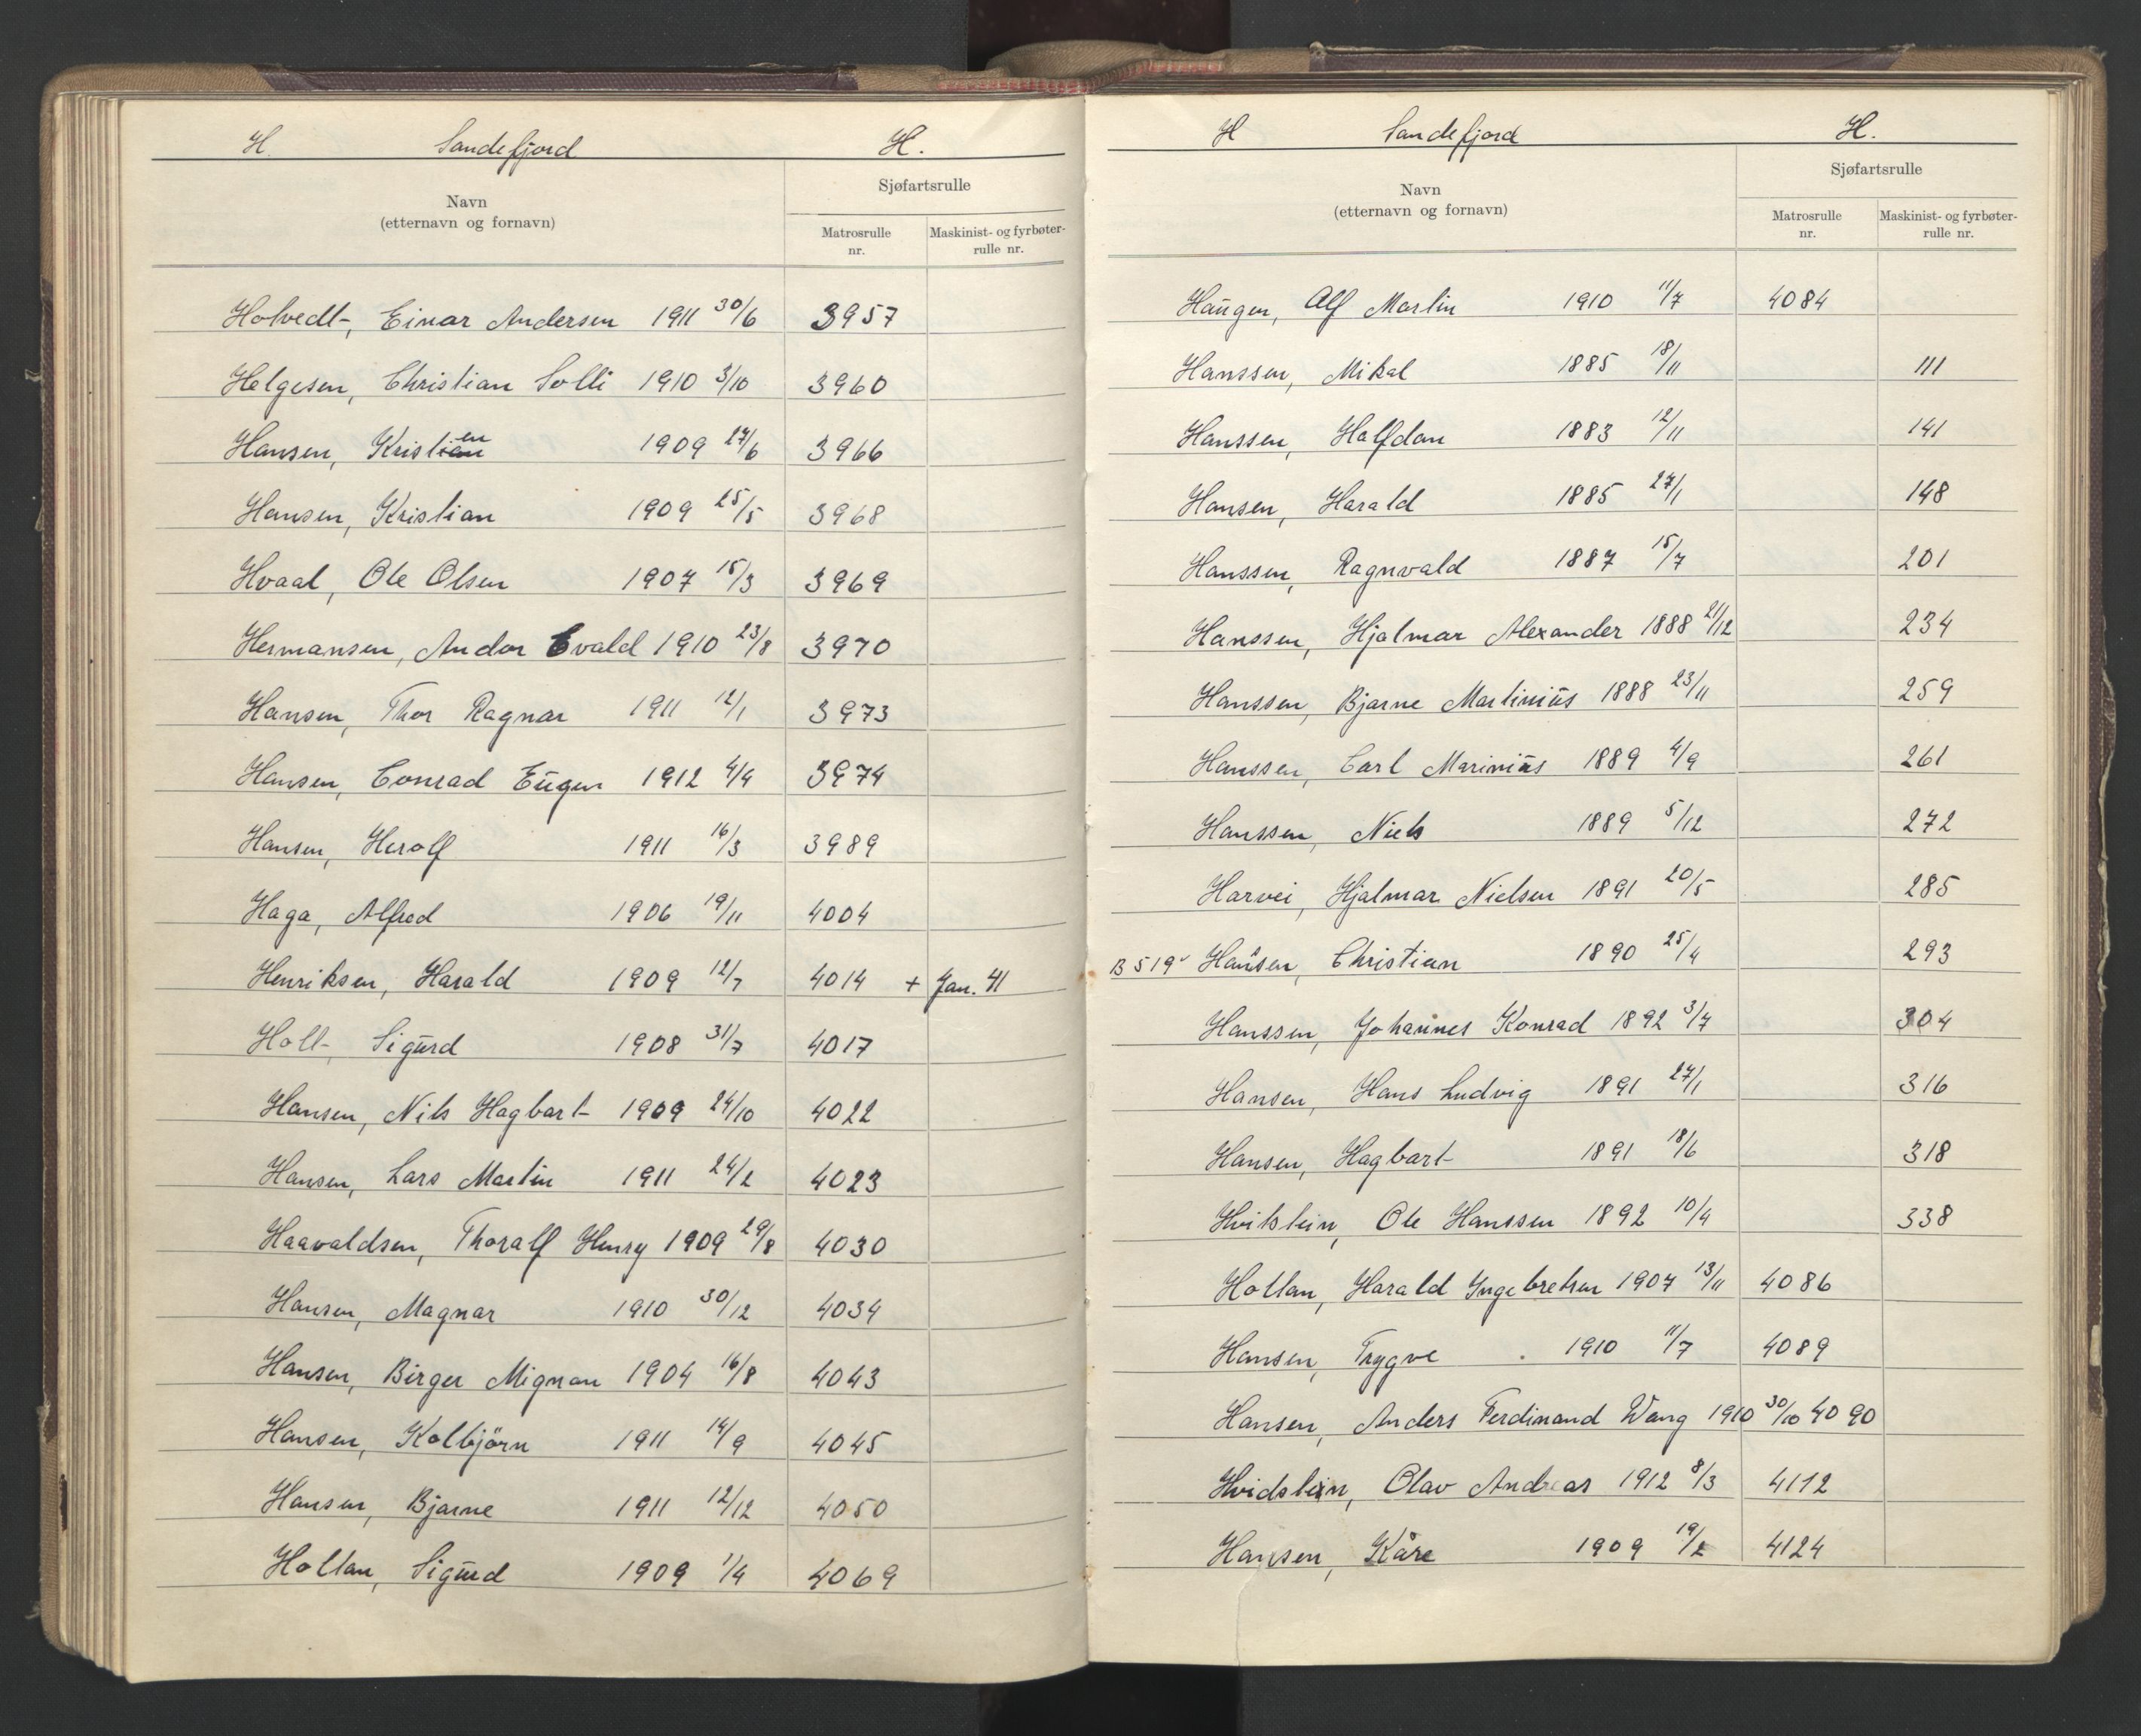 H. Sandefjord H.
Navn
(etternavn og fornavn)
Sjøfartsrulle
Matrosrulle
nr.
Maskinist- og fyrbøter-
rulle nr.
Holvedt, Einar Andersen 1911 30/6 3957
Helgesen, Christian Solli 1910 3/10 3960
Hansen, Kristian en 1909 27/6 3966
Hansen, Kristian 1909 25/5 3968
Hvaal, Ole Olsen 1907 15/3 3969
Hermansen, Andor Evald 1910 23/8 3970
Hansen, Thor Ragnar 1911 12/1 3973
Hansen, Conrad Eugen 1912 4/4 3974
Hansen, Herolf 1911 16/3 3989
Haga, Alfred 1906 19/11 4004
Henriksen, Harald 1909 12/7 4014 + Jan. 41
Holt, Sigurd 1908 31/7 4017
Hansen, Nils Hagbart 1909 24/10 4022
Hansen, Lars Martin 1911 24/2 4023
Haavaldsen, Thoralf Henry 1909 29/8 4030
Hansen, Magnar 1910 30/12 4034
Hansen, Birger Mignon 1904 16/8 4043
Hansen, Kolbjörn 1911 14/9 4045
Hansen, Bjarne 1911 12/12 4050
Holtan, Sigurd 1909 1/4 4069
H Sandefjord H.
Navn
(etternavn og fornavn)
Sjøfartsrulle
Matrosrulle
nr.
Maskinist- og fyrbøter-
rulle nr.
Haugen, Alf Martin 1910 11/7 4084
Hanssen, Mikal 1885 18/11 111
Hanssen, Halfdan 1883 12/11 141
Hansen, Harald 1885 27/1 148
Hanssen, Ragnvald 1887 15/7 201
Hanssen, Hjalmar Alexander 1888 21/12 234
Hanssen, Bjarne Martinius 1888 23/11 259
Hanssen, Carl Marinius 1889 4/9 261
Hanssen, Niels 1889 5/12 272
Harvei, Hjalmar Nielsen 1891 20/5 285
B 519 Hansen, Christian 1890 25/4 293
Hanssen, Johannes Konrad 1892 3/7 304
Hansen, Hans Ludvig 1891 27/1 316
Hansen, Hagbart 1891 18/6 318
Hvitstein, Ole Hanssen 1892 10/4 338
Holtan, Harald Ingebretsen 1907 13/11 4086
Hansen, Trygve 1910 11/7 4089
Hansen, Anders Ferdinand Wang 1910 30/10 4090
Hvidstein, Olav Andreas 1912 8/3 4112
Hansen, Kåre 1909 19/2 4124